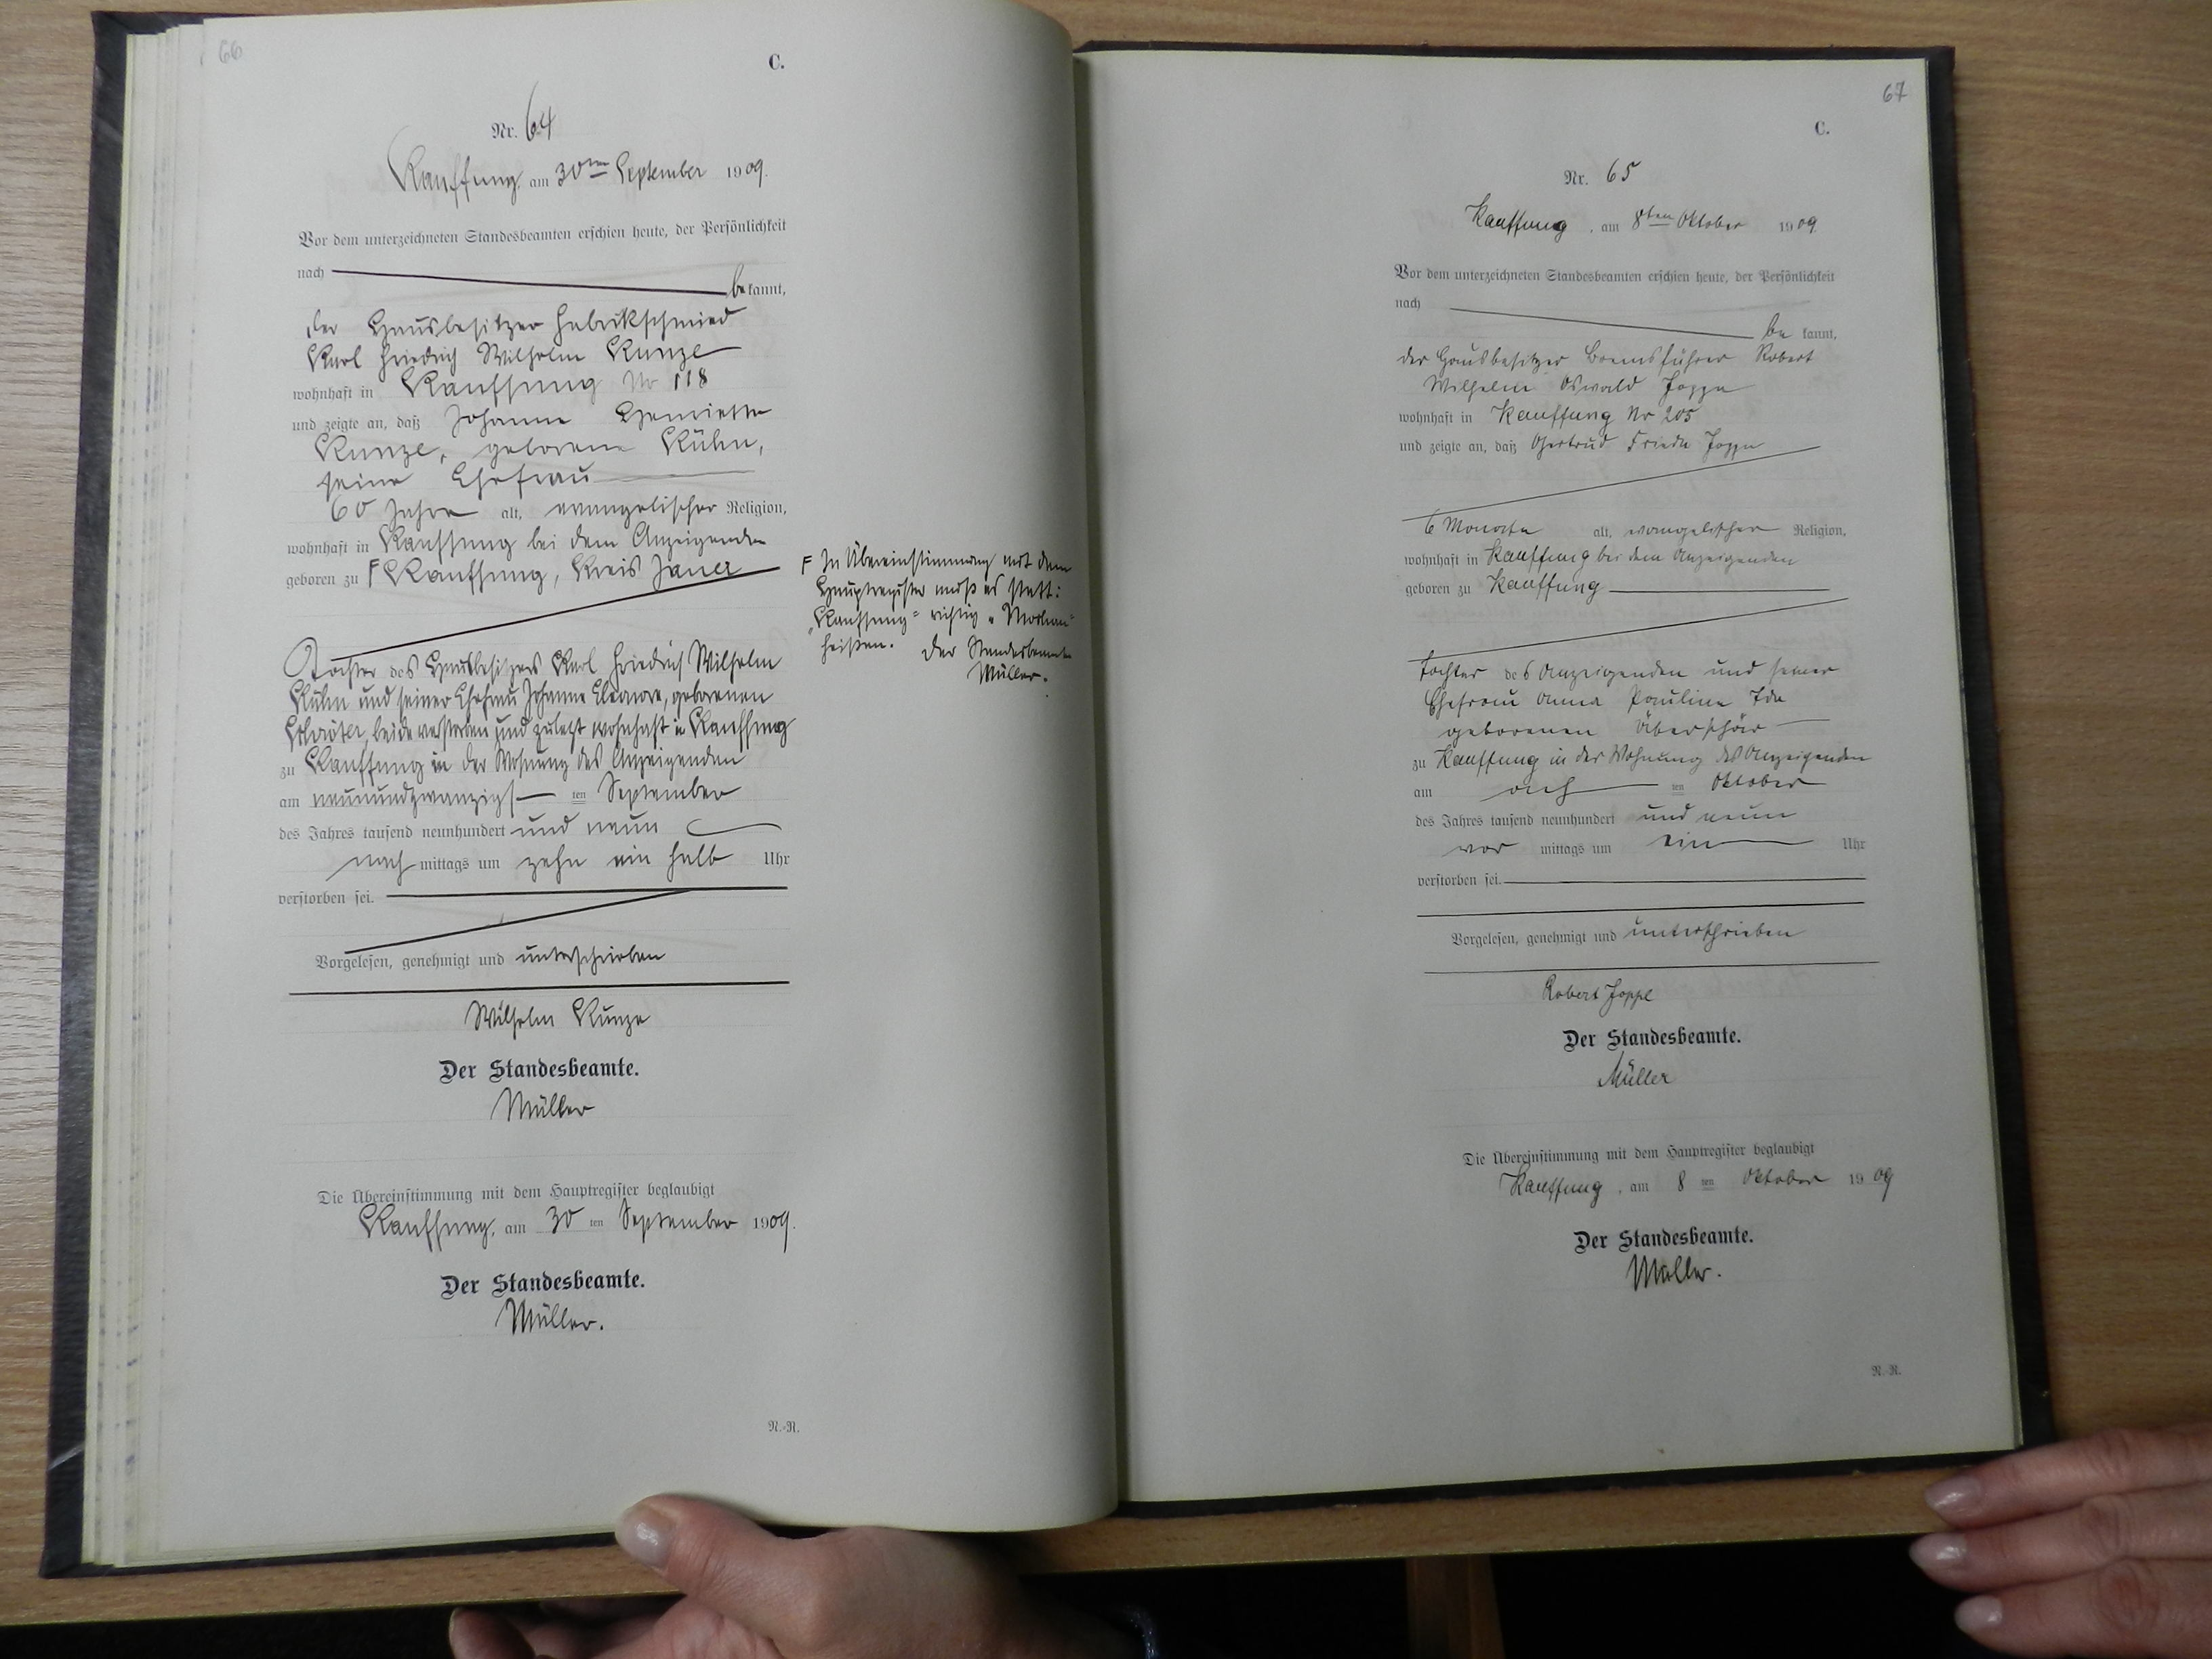 66
C.
Nr. 64
Kauffung, am 30ten September 1909.
Vor dem unterzeichneten Standesbeamten erschien heute, der Persönlichkeit
nach
bekannt,
der Hausbesitzer Fabrikschmied
Karl Friedrich Wilhelm Kunze
wohnhaft in Kauffung Nr 118
und zeigte an, daß Johanne Henriette
Kunze, geborene Kühn,
seine Ehefrau
60 Jahre alt, evangelischer Religion,
wohnhaft in Kauffung bei dem Anzeigenden
geboren zu F Kauffung, Kreis Jauer
F In Übereinstimmung mit dem
Hauptregister muß es statt:
„Kauffung" richtig „
heißen. Der Standesbeamte
Müller.
Tochter des Hausbesitzers Karl Friedrich Wilhelm
Kühn und seiner Ehefrau Johanne Eleonore, geborenen
Schröter, beide verstorben und zuletzt wohnhaft in Kauffung
zu Kauffung in der Wohnung des Anzeigenden
am neunundzwanzigs ten September
des Jahres tausend neunhundert und neun
nach mittags um zehn ein halb Uhr
verstorben sei.
Vorgelesen, genehmigt und unterschrieben
Wilhelm Kunze
Der Standesbeamte.
Müller
Die Übereinstimmung mit dem Hauptregister beglaubigt
Kauffung, am 30 ten September 1909.
Der Standesbeamte.
Müller.
N.-N.
67
C.
Nr. 65
Kauffung, am 8ten Oktober 1909
Vor dem unterzeichneten Standesbeamten erschien heute, der Persönlichkeit
nach
be kannt,
der Hausbesitzer Robert
Wilhelm Oswald Joppe
wohnhaft in Kauffung Nr 205
und zeigte an, daß Gertrud Frieda Joppe
6 Monate alt, evangelischer Religion,
wohnhaft in Kauffung bei dem Anzeigenden
geboren zu Kauffung
Tochter des Anzeigenden und seiner
Ehefrau Anna Pauline Ida
geborenen Überschär
zu Kauffung in der Wohnung des Anzeigenden
am ach ten Oktober
des Jahres tausend neunhundert und neun
vor mittags um ein Uhr
verstorben sei.
Vorgelesen, genehmigt und unterschrieben
Robert Joppe
Der Standesbeamte.
Müller
Die Übereinstimmung mit dem Hauptregister beglaubigt
Kauffung, am 8 ten Oktober 1909
Der Standesbeamte.
Müller.
N.-N.